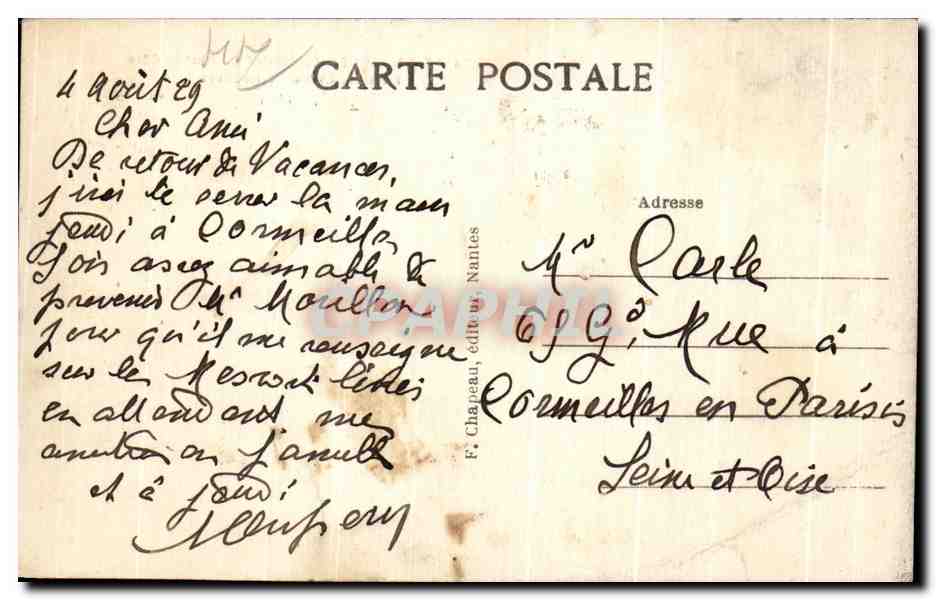 CARTE POSTALE
4 Août 29
Cher Ami
De retour de Vacances,
j'irai te serrer la main
jeudi à Cormeilles
Sois assez aimable de
prevenir Mr
pour qu'il me renseigne
sur les
en attendant mes
en famille
et à jeudi
F. Chapeau, éditeur, Nantes
CPAPHIL
Adresse
Mr Carle
69 Gde Rue à
Cormeilles en Parisis
Seine et Oise